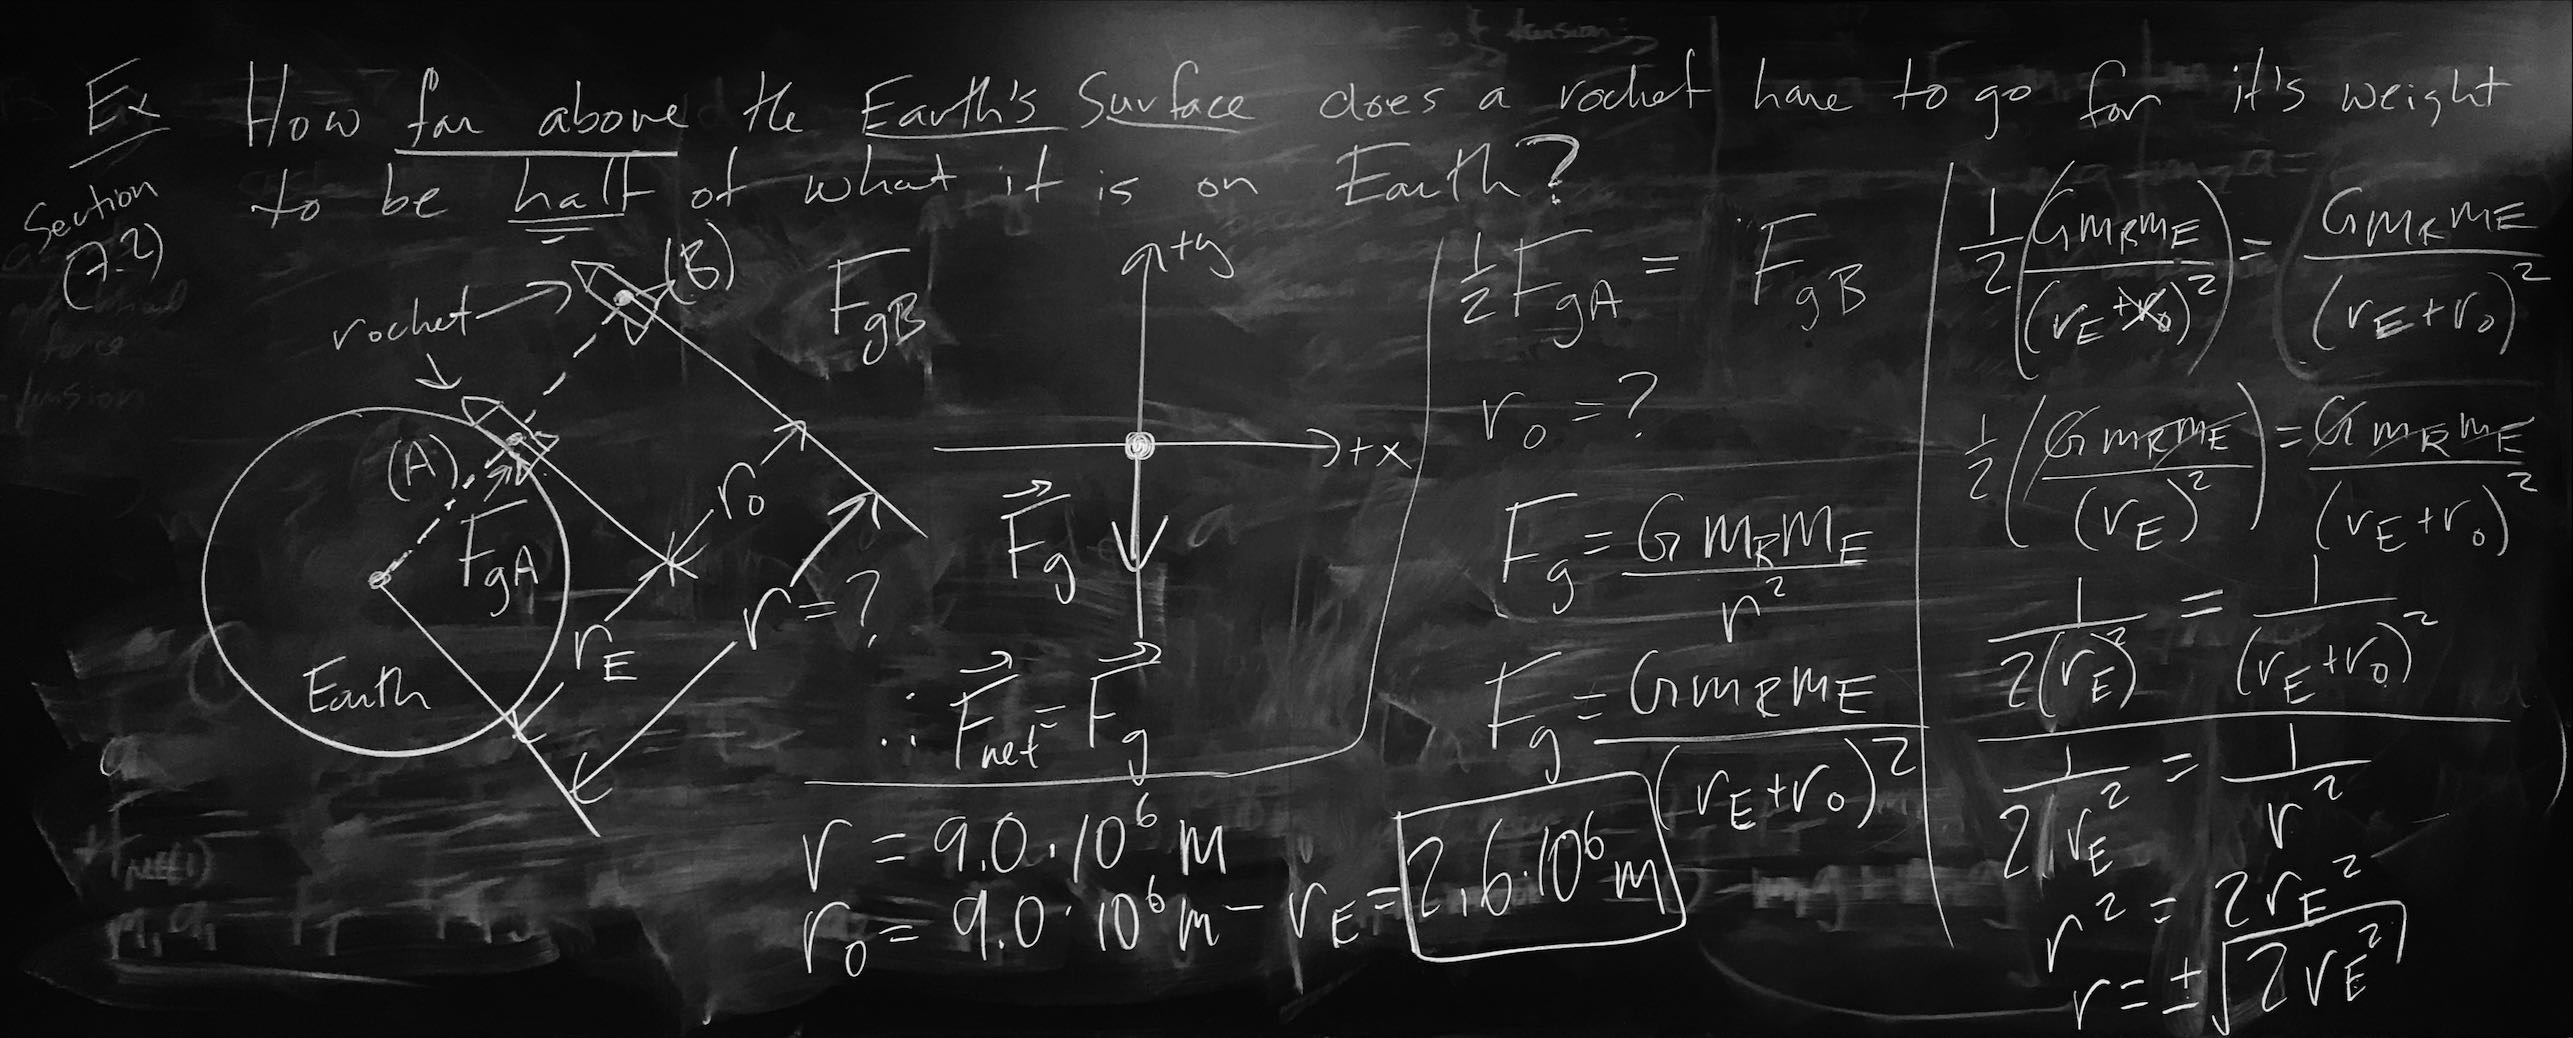 Ex How far above the Earth's Surface does a rocket have to go for it's weight
to be half of what it is on Earth?
Section
(7.2)
rocket
(B)
F_gB
(A)
F_gA
Earth
r_E
r_0
r = ?
+y
+x
F⃗_g
∴ F⃗_net = F⃗_g
r = 9.0 · 10^6 m
r_0 = 9.0 · 10^6 m - r_E = 2.6 · 10^6 m
1/2 F_gA = F_gB
r_0 = ?
F_g = G m_R m_E / r^2
F_g = G m_R m_E / (r_E + r_0)^2
1/2 (G m_R m_E / (r_E + r_0)^2) = G m_R m_E / (r_E + r_0)^2
1/2 (G m_R m_E / (r_E)^2) = G m_R m_E / (r_E + r_0)^2
1 / 2(r_E)^2 = 1 / (r_E + r_0)^2
1 / 2 r_E^2 = 1 / r^2
r^2 = 2 r_E^2
r = ± √(2 r_E^2)